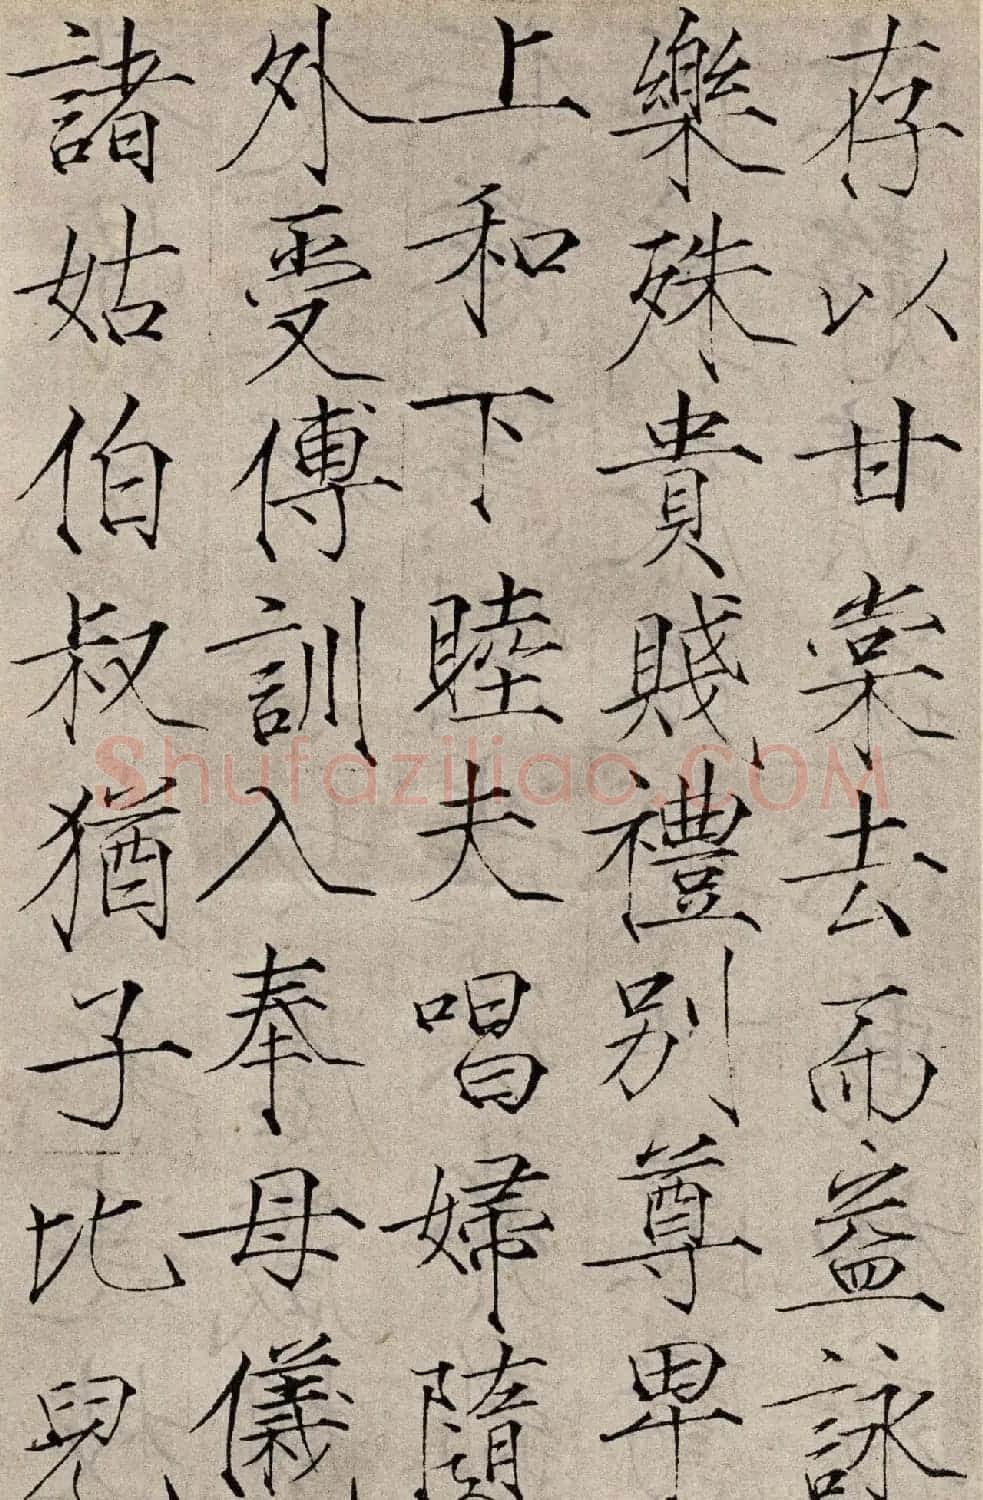 存以甘棠去而益詠
樂殊貴賤禮別尊卑
上和下睦夫唱婦隨
外受傅訓入奉母儀
諸姑伯叔猶子比兒
Shufaziliao.COM